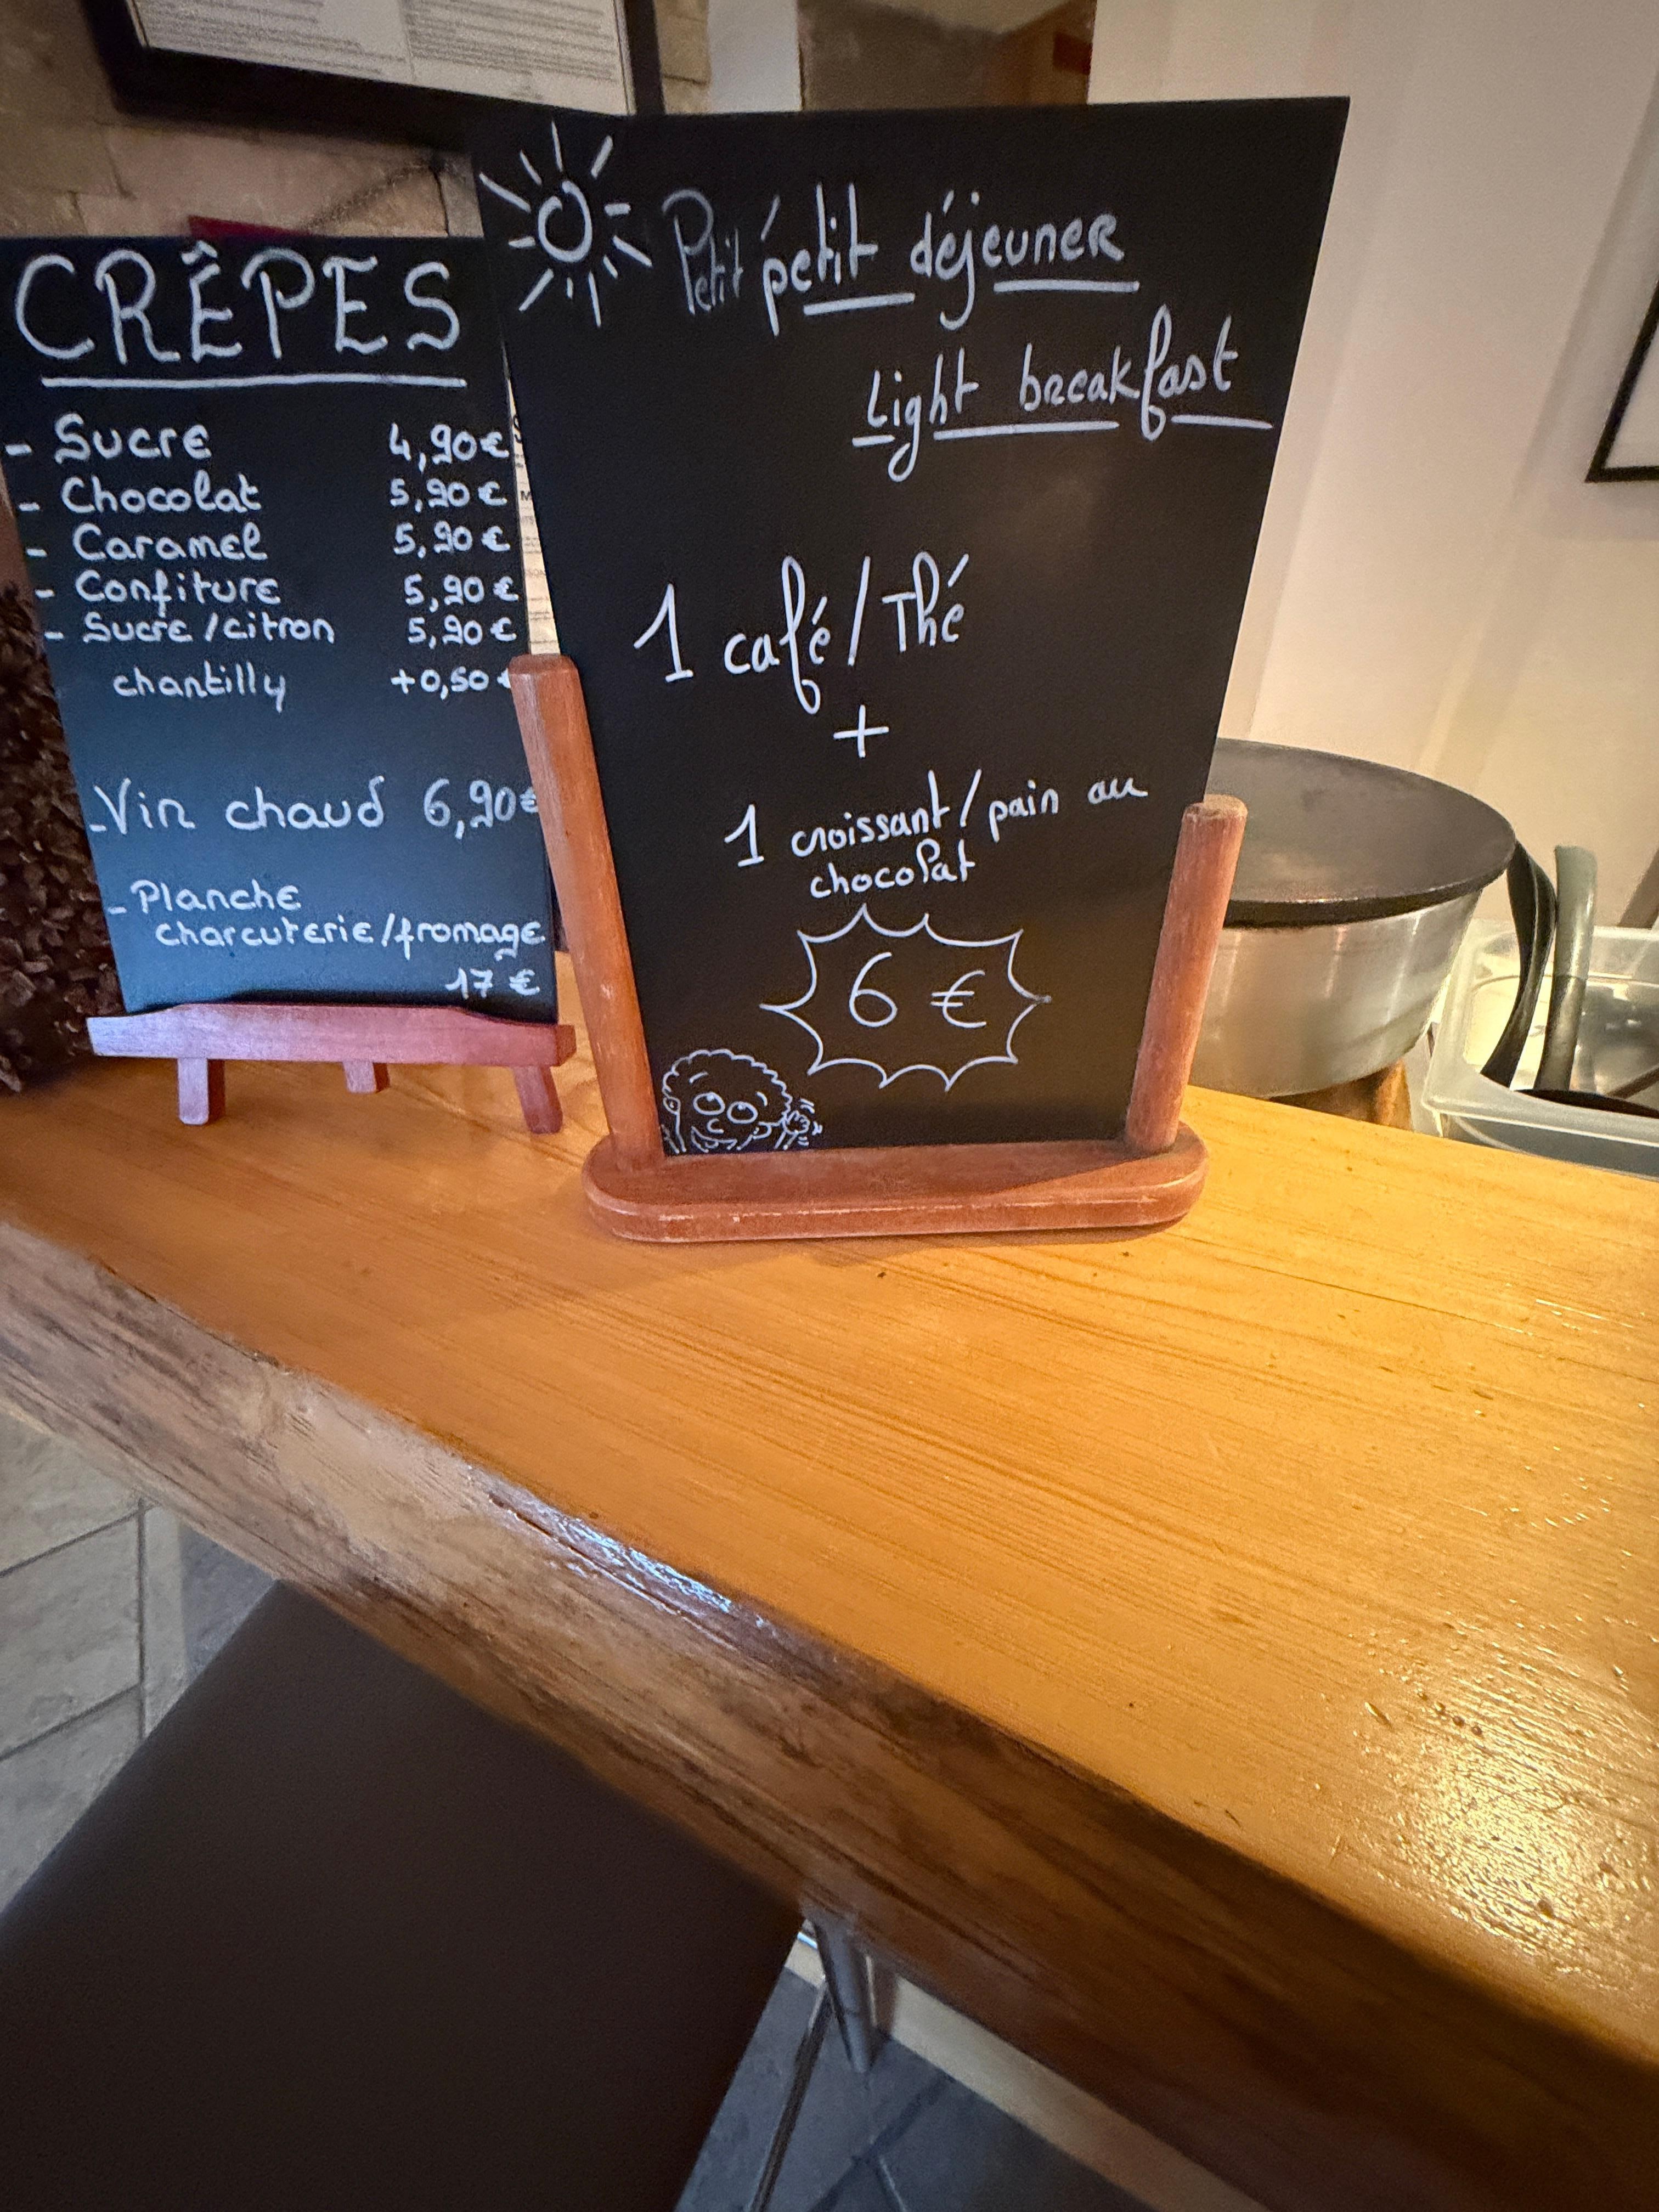 CRÊPES
- Sucre 4,90€
- Chocolat 5,90€
- Caramel 5,90€
- Confiture 5,90€
- Sucre/citron 5,90€
chantilly +0,50€
- Vin chaud 6,90€
- Planche
charcuterie/fromage
17 €
Petit petit déjeuner
Light breakfast
1 café/Thé
+
1 croissant/pain au
chocolat
6 €